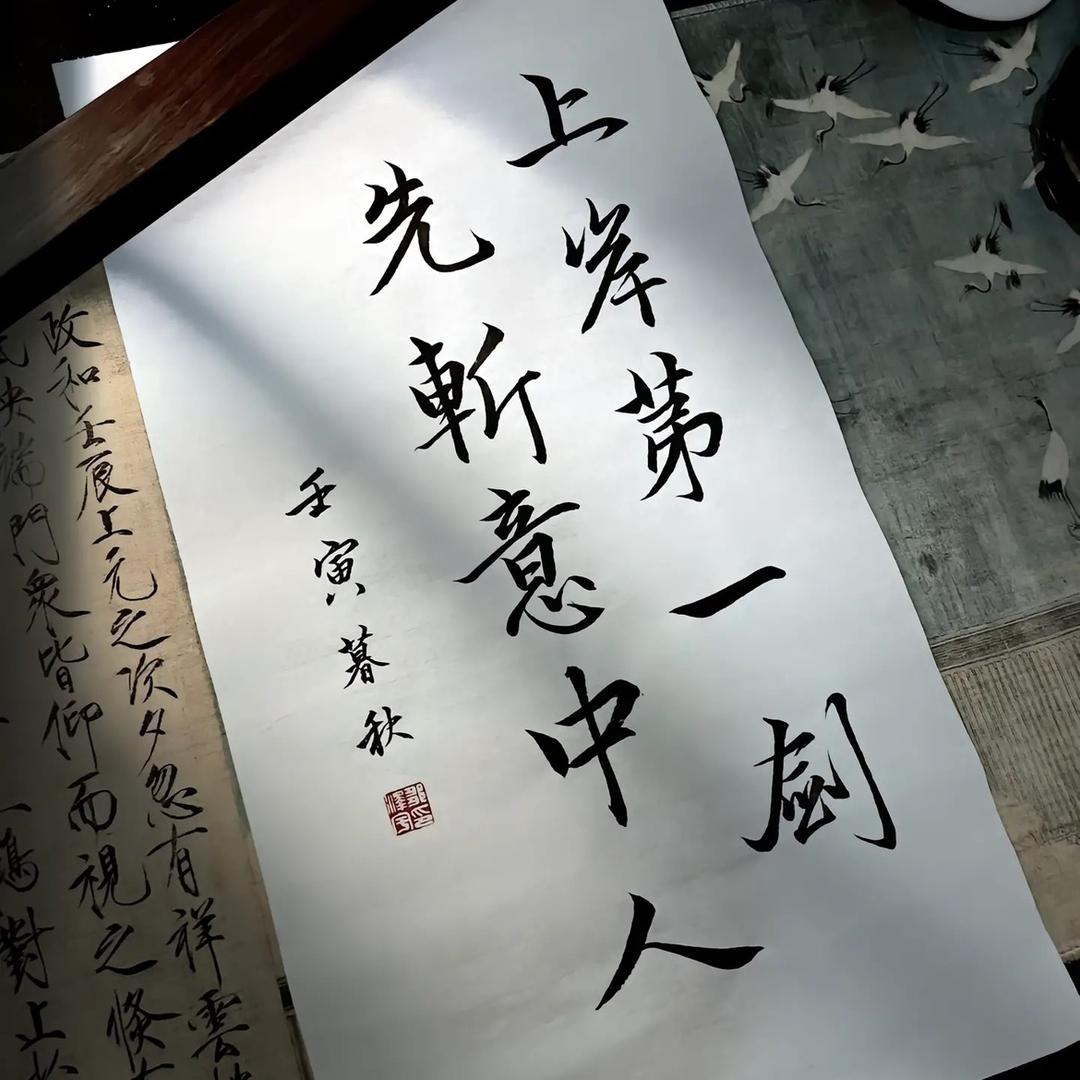 上岸第一劍
先斬意中人
壬寅暮秋
政和壬辰上元之次夕忽有祥雲
端門衆皆仰而視之倏有
對止於